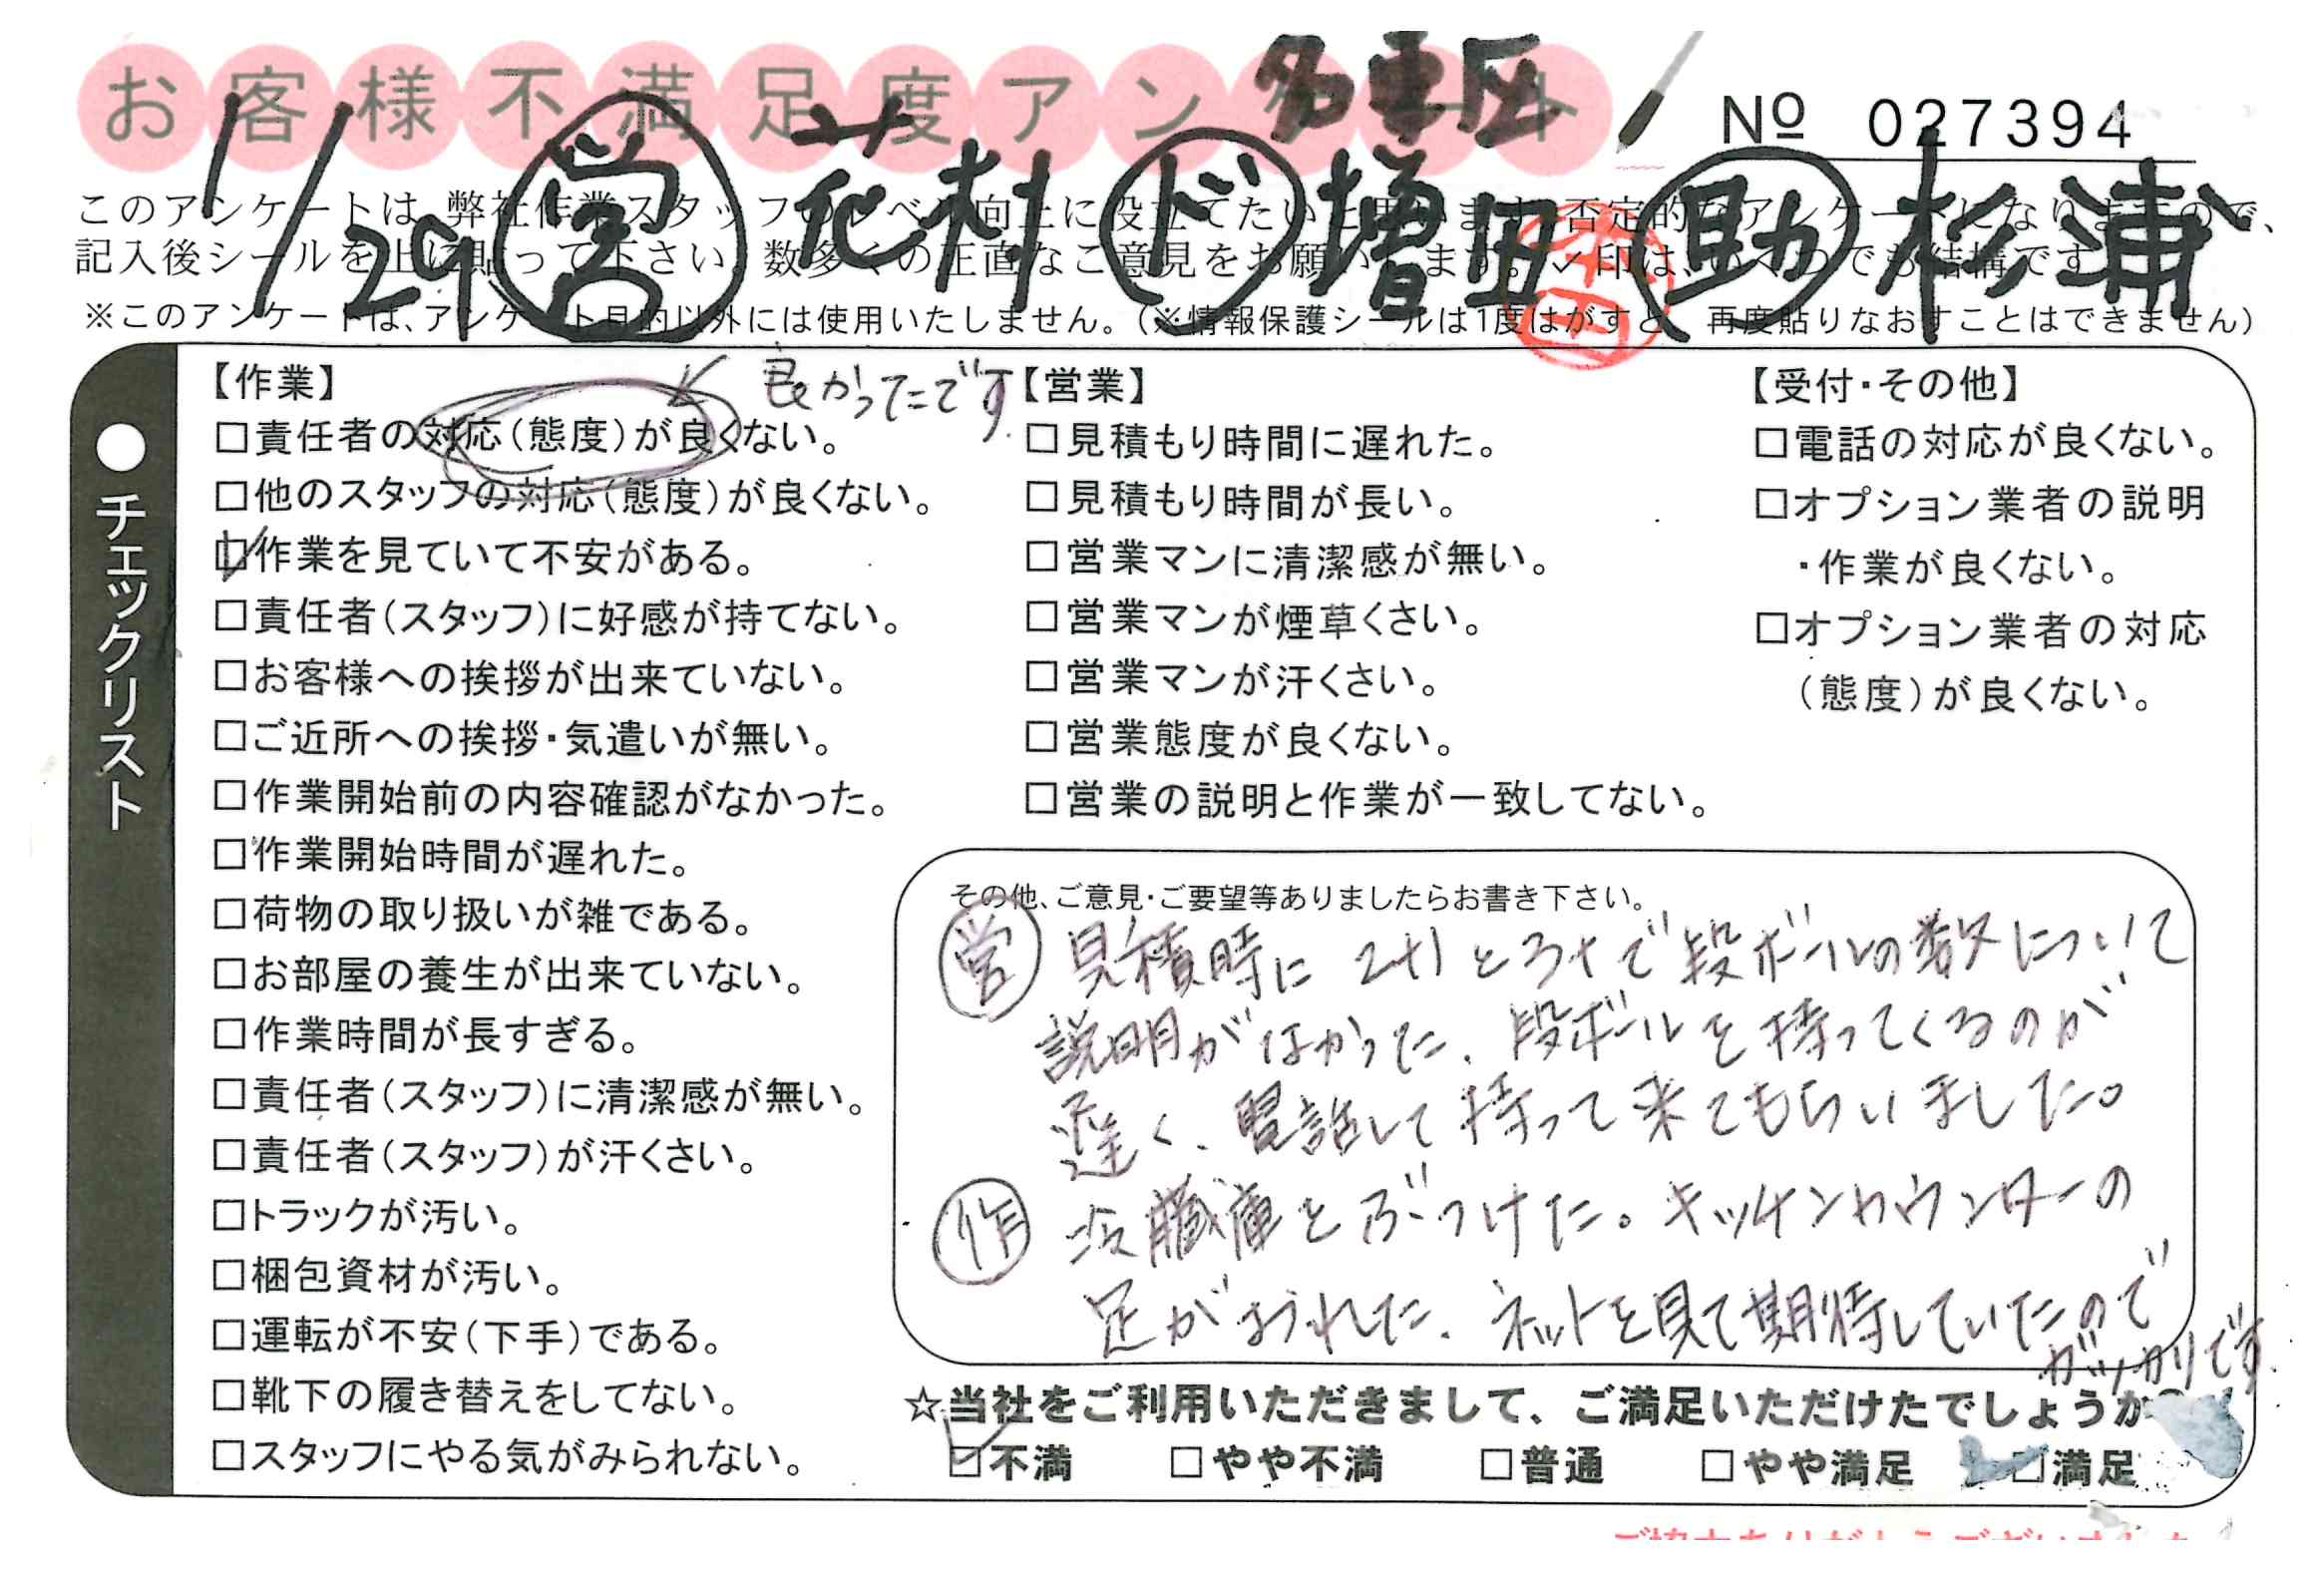 お客様不満足度アンケート
№ 027394
1/29 営 花村 ド 増田 助 杉浦
このアンケートは、弊社作業スタッフのレベル向上に役立てたいと思います。否定的なアンケートになりますので、
記入後シールを上に貼って下さい。数多くの正直なご意見をお願いします。✓印は、いくつでも結構です。
※このアンケートは、アンケート目的以外には使用いたしません。(※情報保護シールは1度はがすと、再度貼りなおすことはできません)
●チェックリスト
【作業】
良かったです。
□責任者の対応(態度)が良くない。
□他のスタッフの対応(態度)が良くない。
☑作業を見ていて不安がある。
□責任者(スタッフ)に好感が持てない。
□お客様への挨拶が出来ていない。
□ご近所への挨拶・気遣いが無い。
□作業開始前の内容確認がなかった。
□作業開始時間が遅れた。
□荷物の取り扱いが雑である。
□お部屋の養生が出来ていない。
□作業時間が長すぎる。
□責任者(スタッフ)に清潔感が無い。
□責任者(スタッフ)が汗くさい。
□トラックが汚い。
□梱包資材が汚い。
□運転が不安(下手)である。
□靴下の履き替えをしてない。
□スタッフにやる気がみられない。
【営業】
□見積もり時間に遅れた。
□見積もり時間が長い。
□営業マンに清潔感が無い。
□営業マンが煙草くさい。
□営業マンが汗くさい。
□営業態度が良くない。
□営業の説明と作業が一致してない。
【受付・その他】
□電話の対応が良くない。
□オプション業者の説明
・作業が良くない。
□オプション業者の対応
(態度)が良くない。
その他、ご意見・ご要望等ありましたらお書き下さい。
営 見積時に2t1と3tで段ボールの数について
説明がなかった、段ボールを持ってくるのが
遅く、電話して持って来てもらいました。
作 冷蔵庫をぶつけた。キッチンカウンターの
足がおれた、ネットを見て期待していたので
ガッカリです。
☆当社をご利用いただきまして、ご満足いただけたでしょうか?
☑不満 □やや不満 □普通 □やや満足 □満足